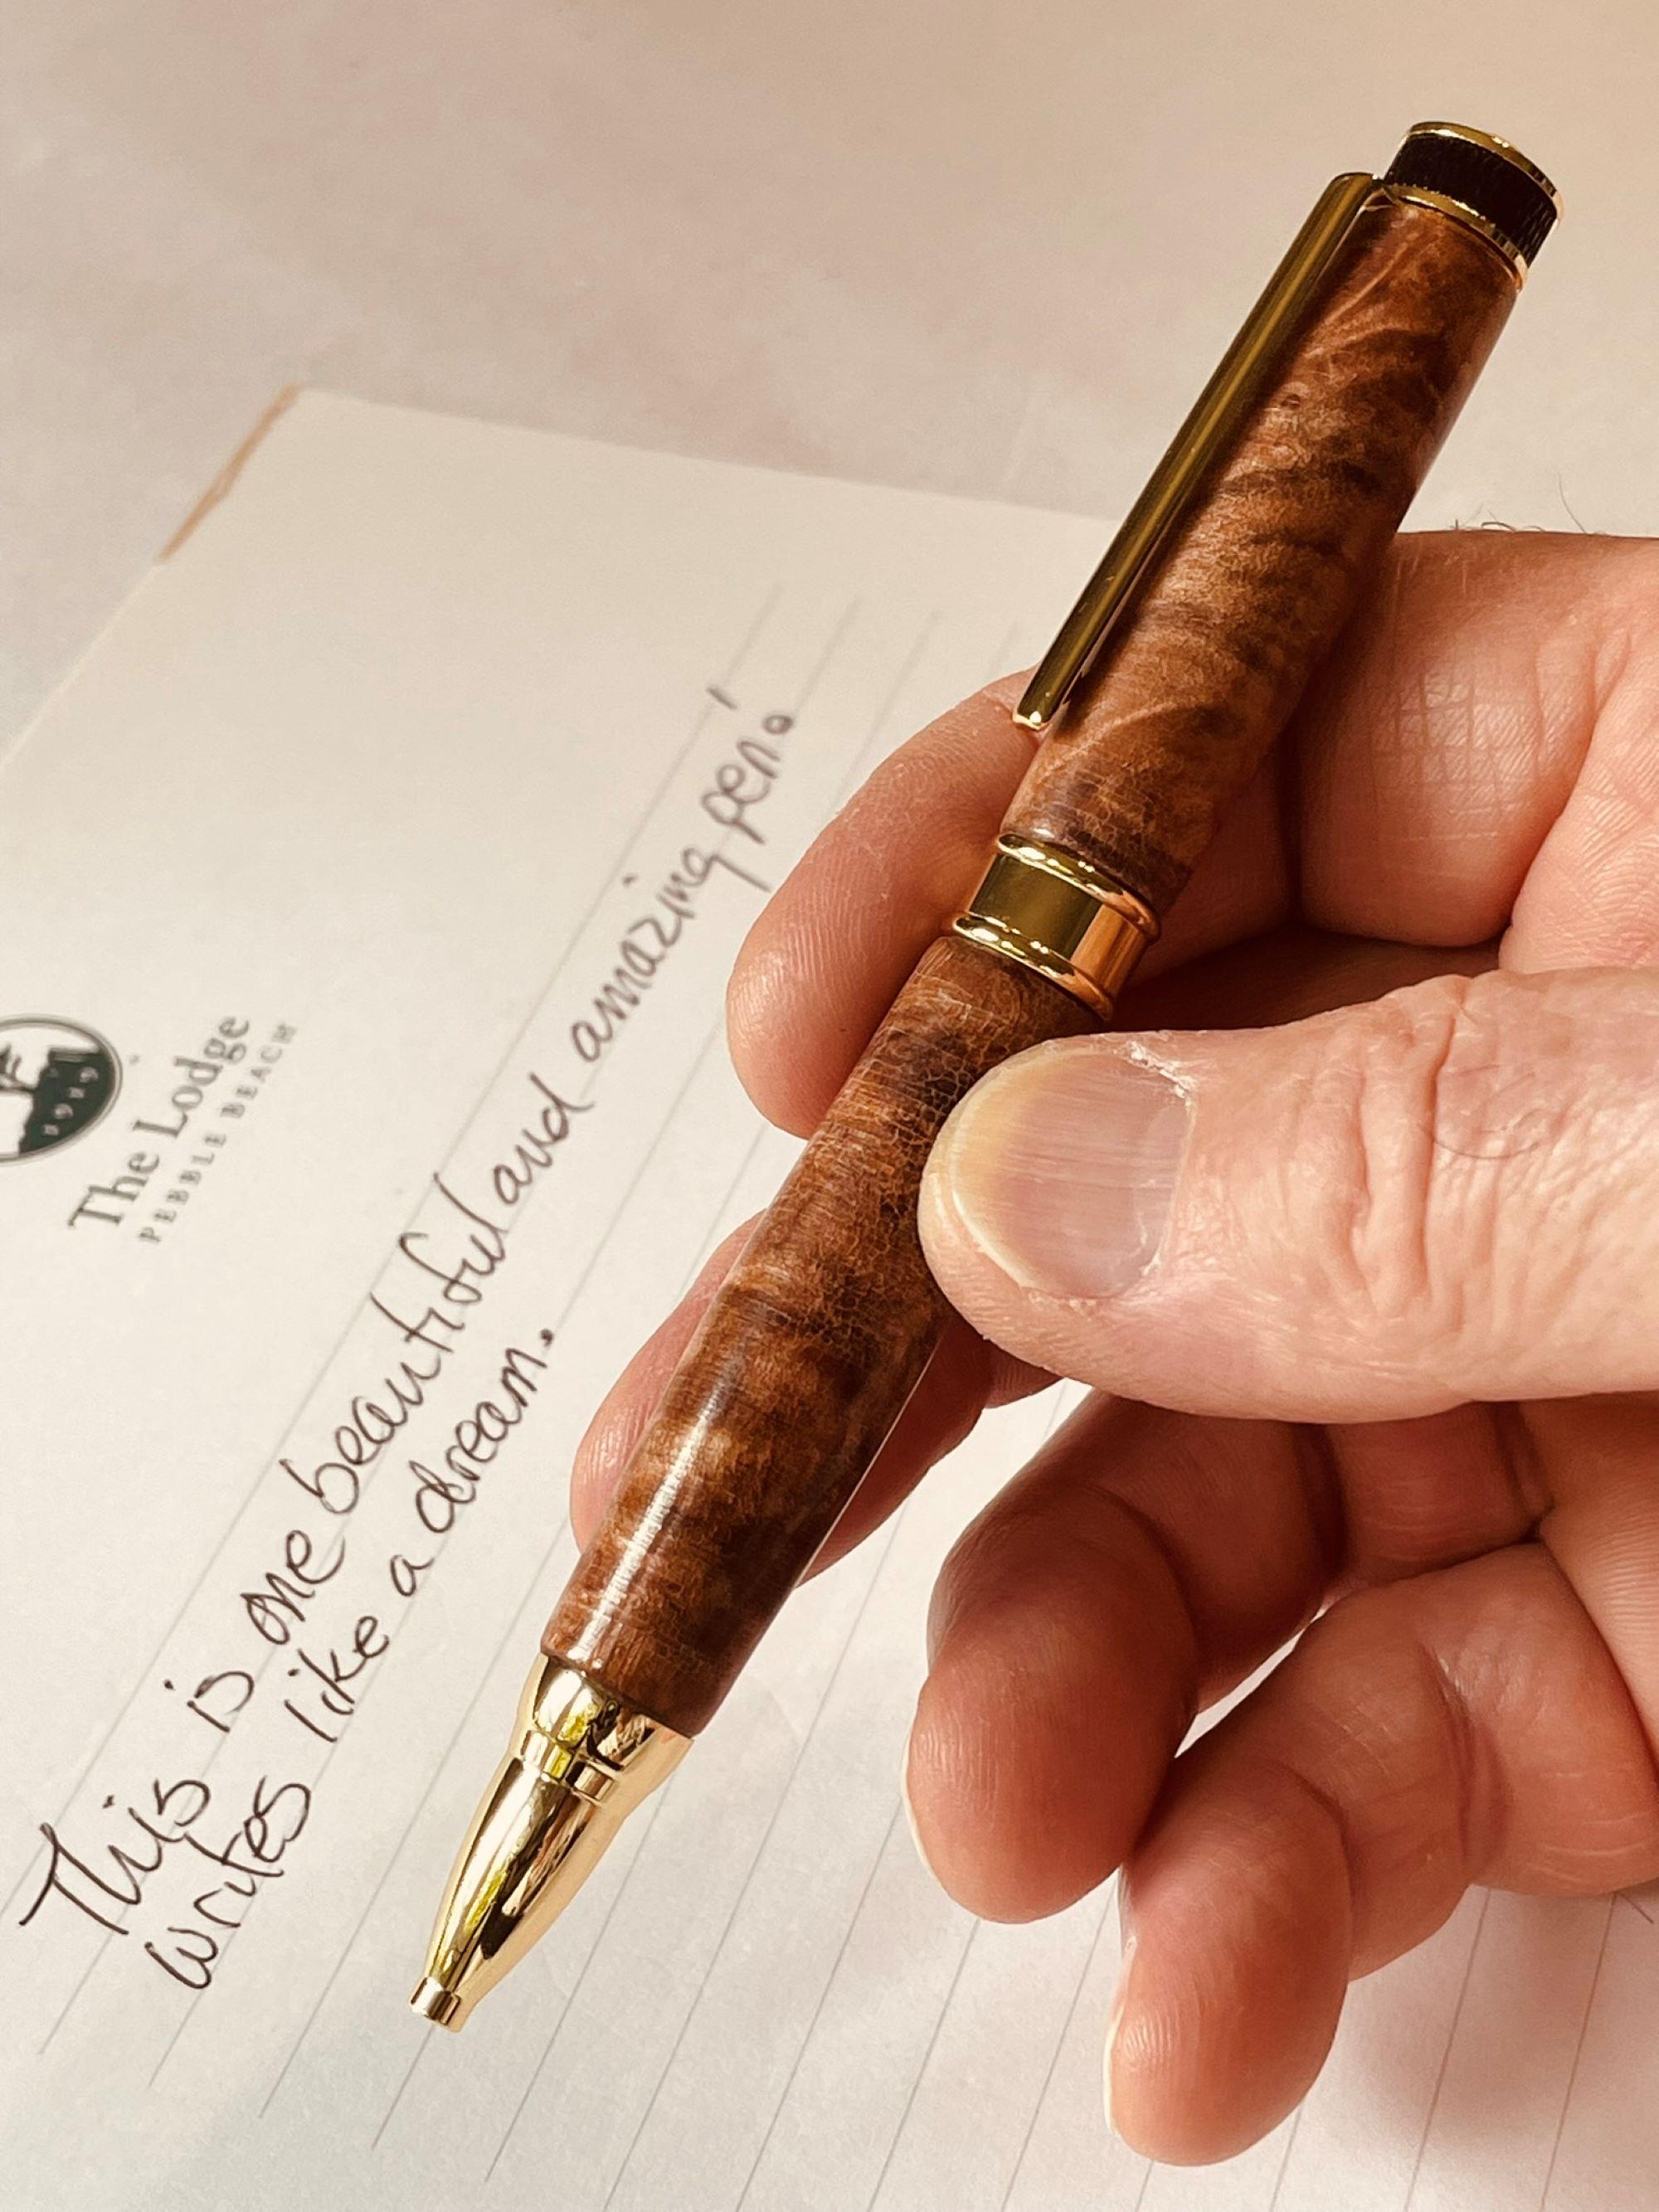 The Lodge
PEBBLE BEACH
1919
This is one beautiful and amazing pen!
writes like a dream.